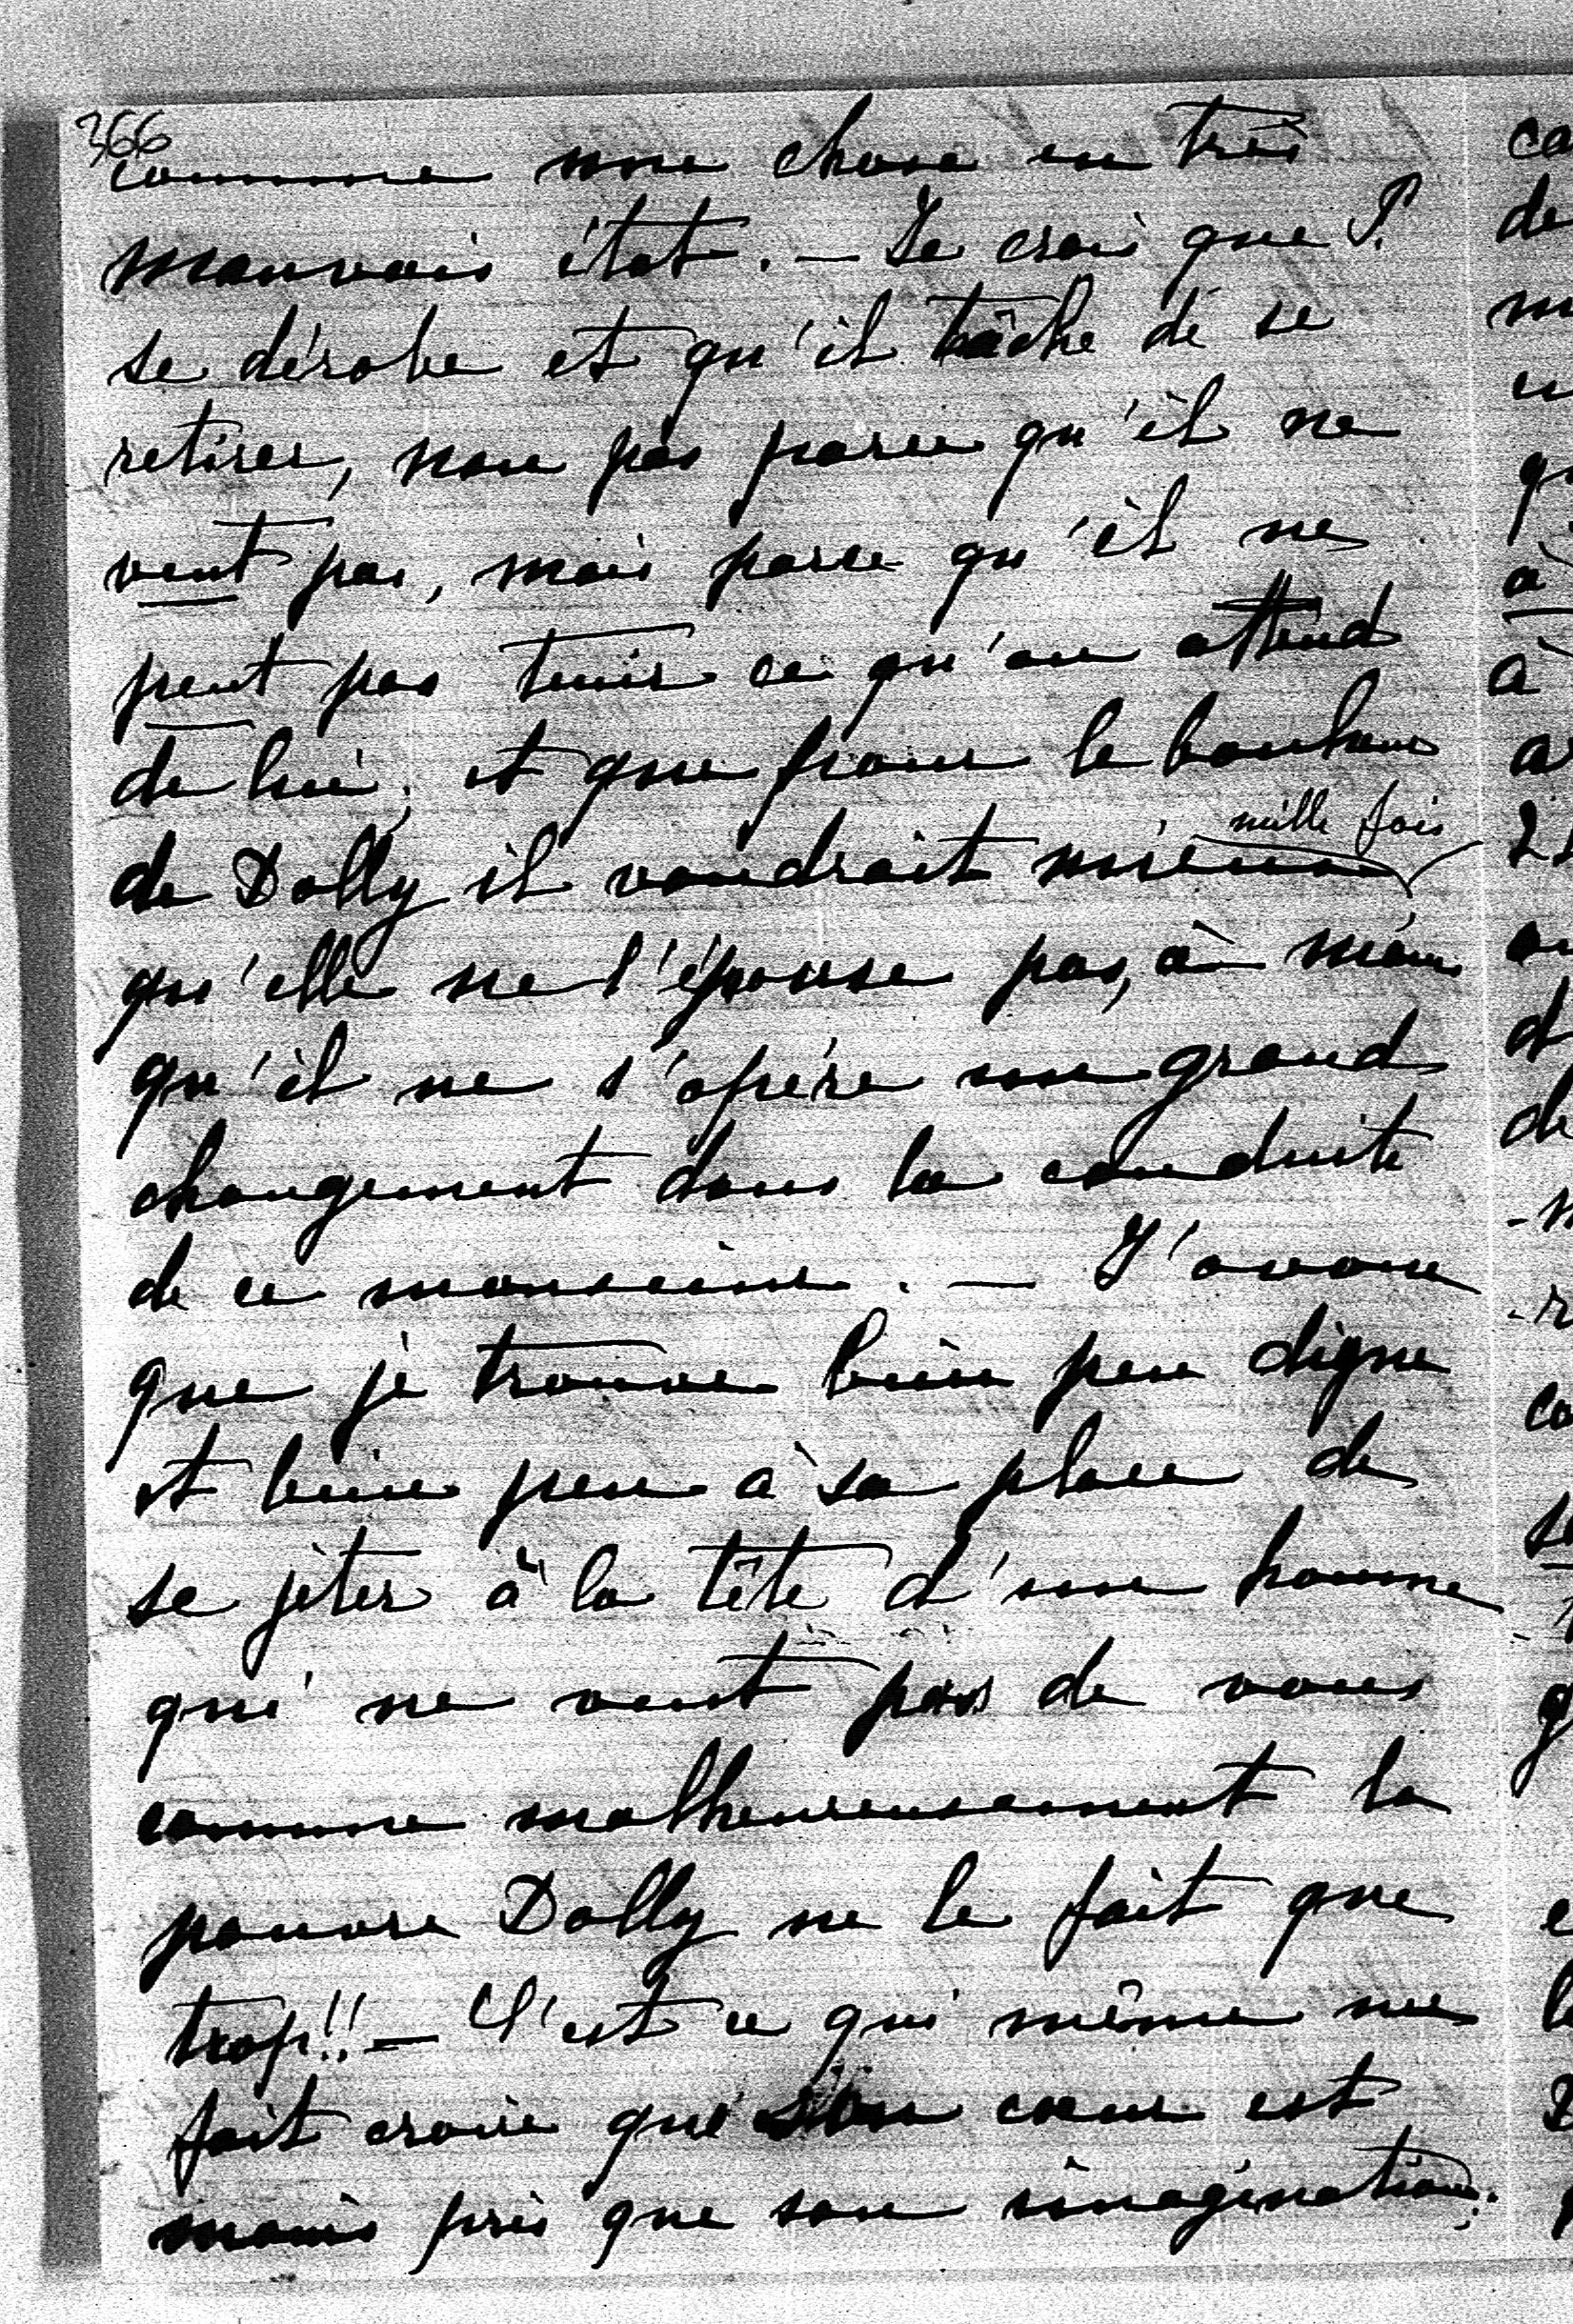 366
comme une chose en très
mauvais état. — Je crois que P.
se dérobe et qu'il tâche de se
retirer, non pas parce qu'il ne
veut pas, mais parce qu'il ne
peut pas tenir ce qu'on attend
de lui, et que pour le bonheur
mille fois
de Dolly il voudrait mieux
qu'elle ne l'épouse pas, à moins
qu'il ne s'opère un grand
changement dans la conduite
de ce monsieur. — J'avoue
que je trouve bien peu digne
et bien peu à sa place de
se jeter à la tête d'un homme
qui ne veut pas de vous
comme malheureusement la
pauvre Dolly ne le fait que
trop!! — C'est ce qui même me
fait croire que son cœur est
moins pris que son imagination;
ca
de
à
à
de
co